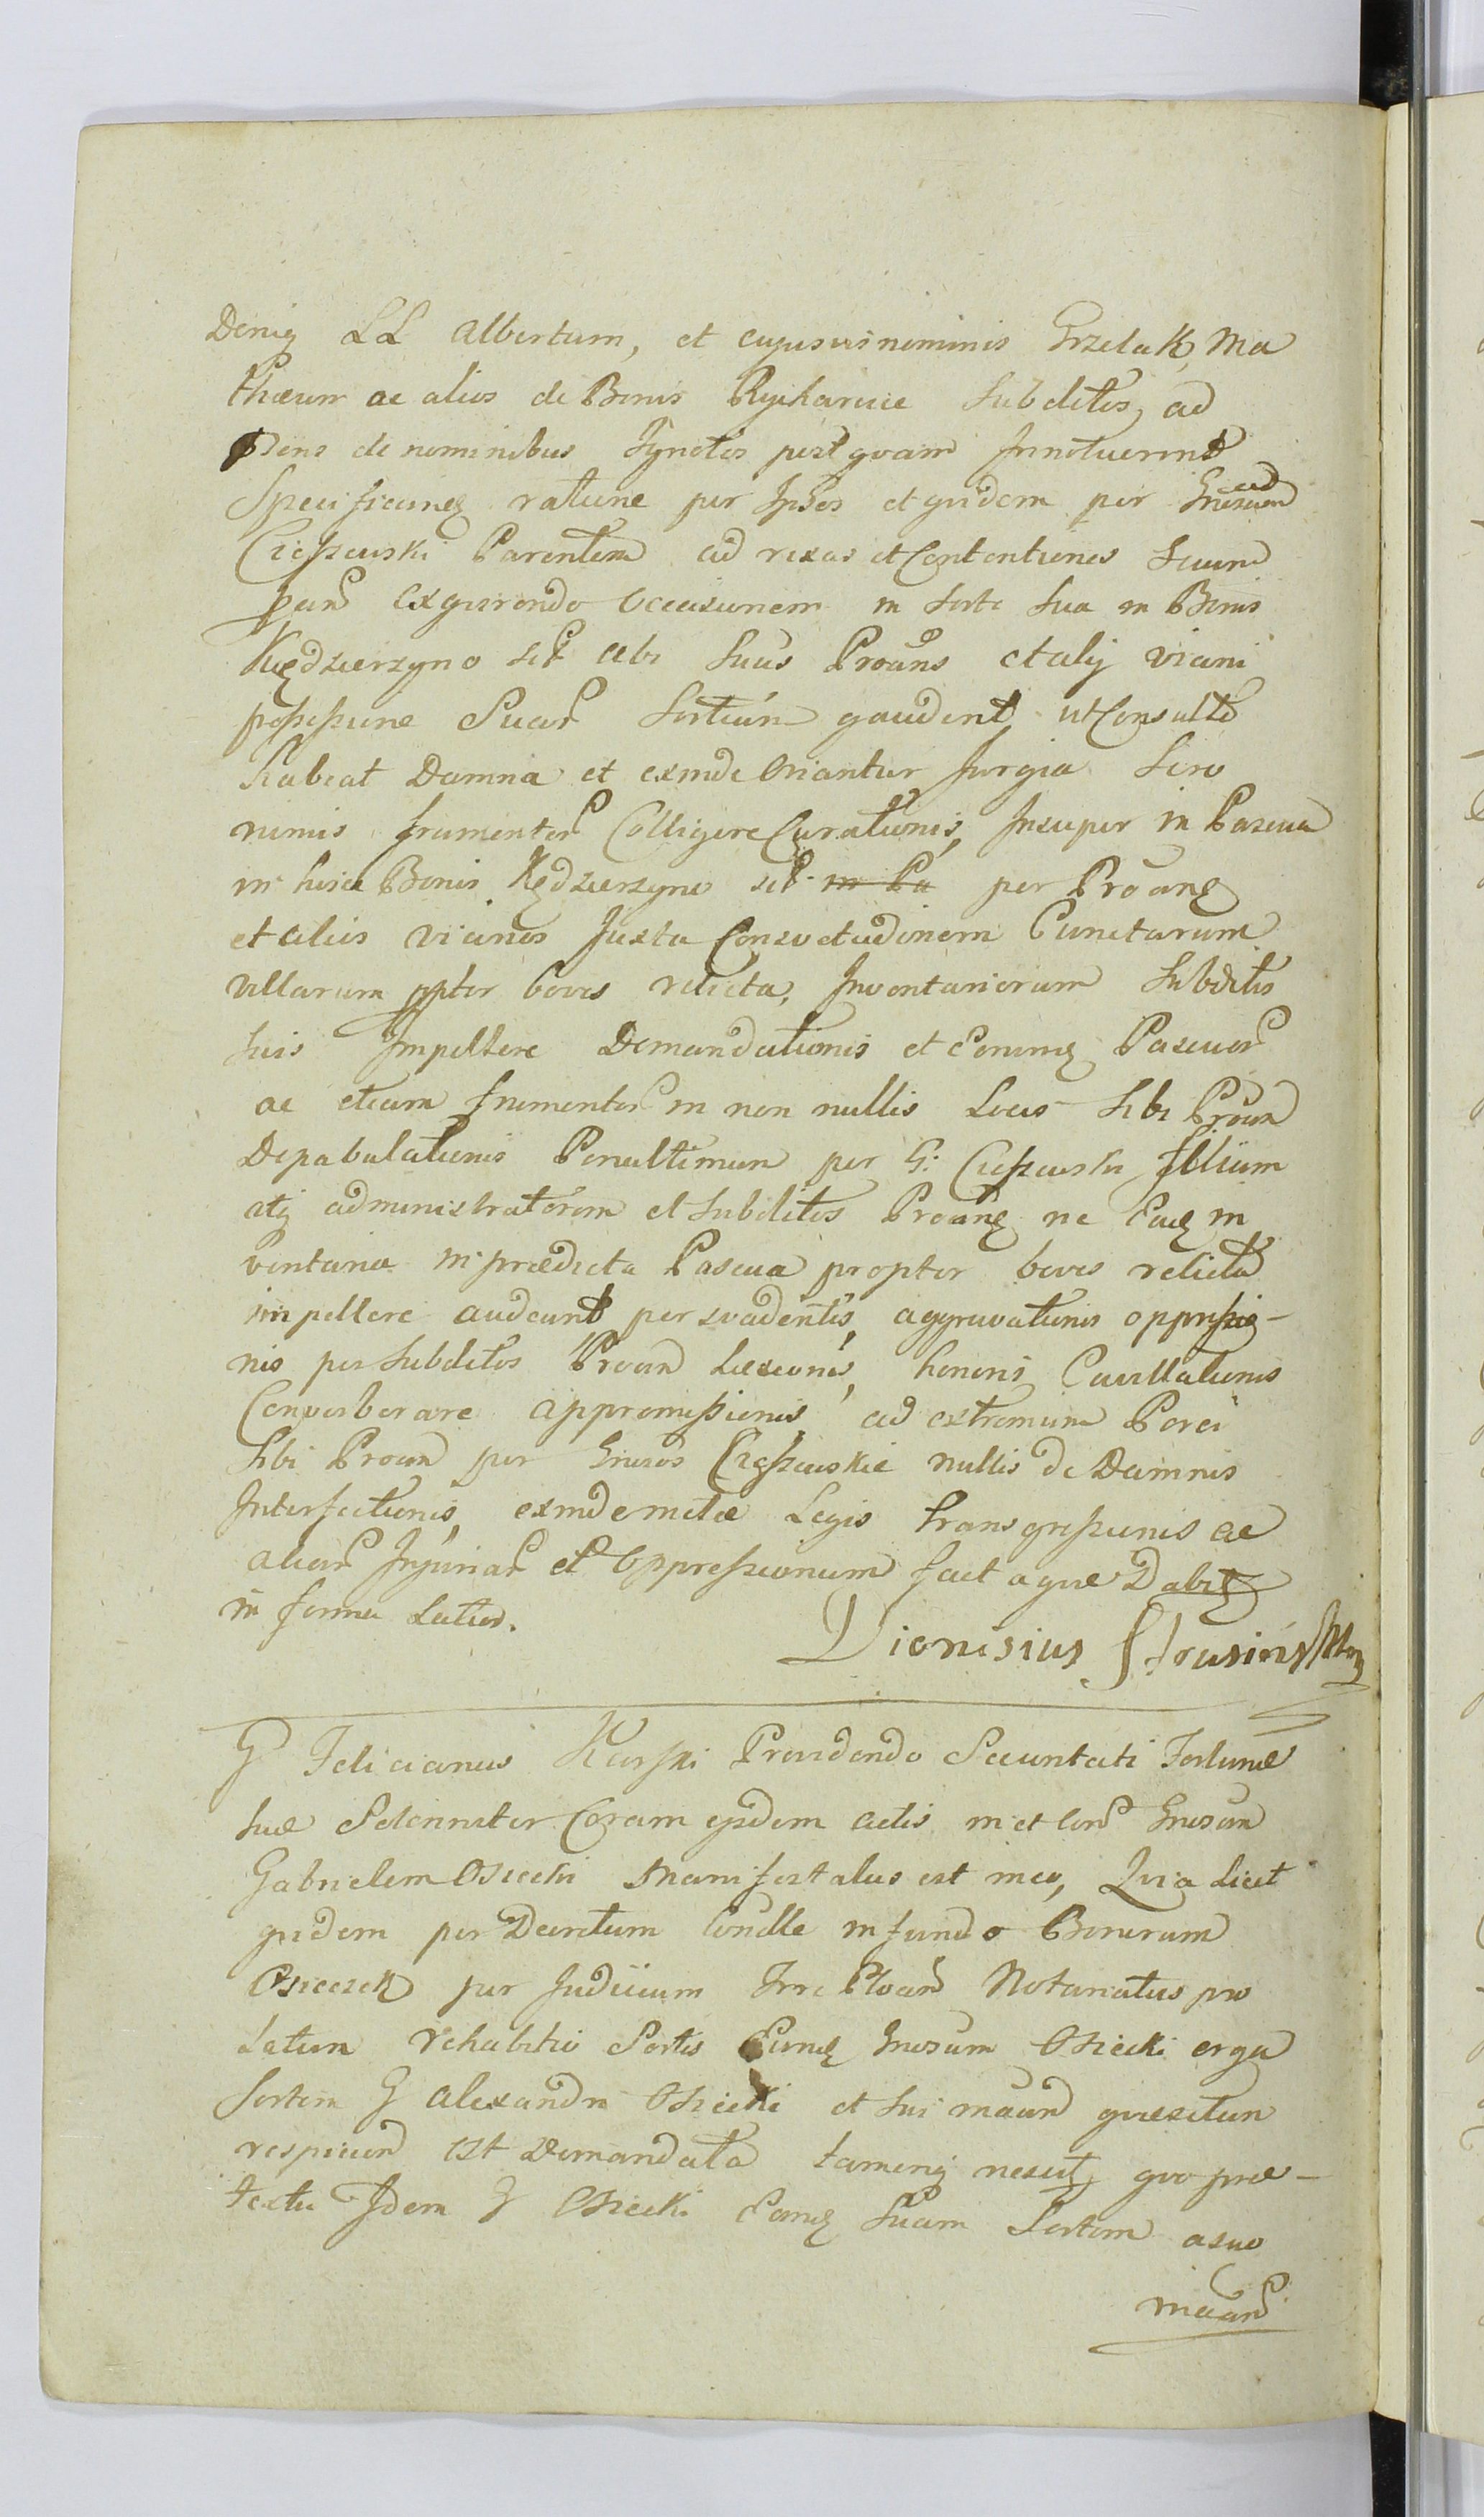 Deniq LL Albertum, et cujusvis nominis Grzelak, Ma
thæum ac alios de Bonis Rycharcice Subditos, ad
Psens de nominibus Ignotos post quam Innotuerint
Specificanq ratione per Ipsos et quidem per Gnesum
Czeszewski Parentem ad rixas et Contentiones
exquirendo occasionem in sorte sua in Bonis
Kędzierzyno sit ubi suus Proans et alij vicini
possessione Suar Sortium gaudent, ut Consulto
habeat Damna et exinde Oriantur Jurgia Sero
nimis frumentor Colligere Curationis, Insuper in Pascua
in hisce Bonis Kędzierzyno sit in Pa per Proanq
et alios vicinos Juxta Consvetudinem Cunctarum
Villarum ppter boves relicta, Inventariorum Subditis
suis Impellere Demandationis et eorumq Pascuor
ac etiam frumentor in non nullis Locis Sibi Proan
Depabulationis Penultimum per G: Czeszewski filium
atq administratorem et Subditos Proanq ne Eaq in
ventaria in prædicta Pascua propter boves relicta
impellere audeant persvadentis, aggravationis oppressio-
nis per Subditos Proan Læsionis, honoris Cavillationis
Converberare appromissionis, ad extremum Porci
Sibi Proan per Gnesos Czeszewskie nullis de Damnis
Interfectionis, exinde metæ Legis transgressionis ac
aliar Injuriar et Oppressionum fact aque Dabitq
in forma Latior.
Dionisius Strusiński mp
G Felicianus Karski Providendo Securitati Fortunæ
suæ Solenniter Coram ejsdem actis in et Con Gnesum
Gabrielem Osiecki Manifestatus est ineo, Quia licet
quidem per Decretum Condle in fundo Bonorum
Osieczek per Judicium Trre Ploan Notariatus pro
latum rehabitio Sortis Eumq Gnesum Osiecki erga
Sortem G Alexandri Osiecki et sui maan quæsitum
respicien est Demandata tamenq nescit, quo præ-
textu Idem G Osiecki Eamq Suam Sortem a suo
maan